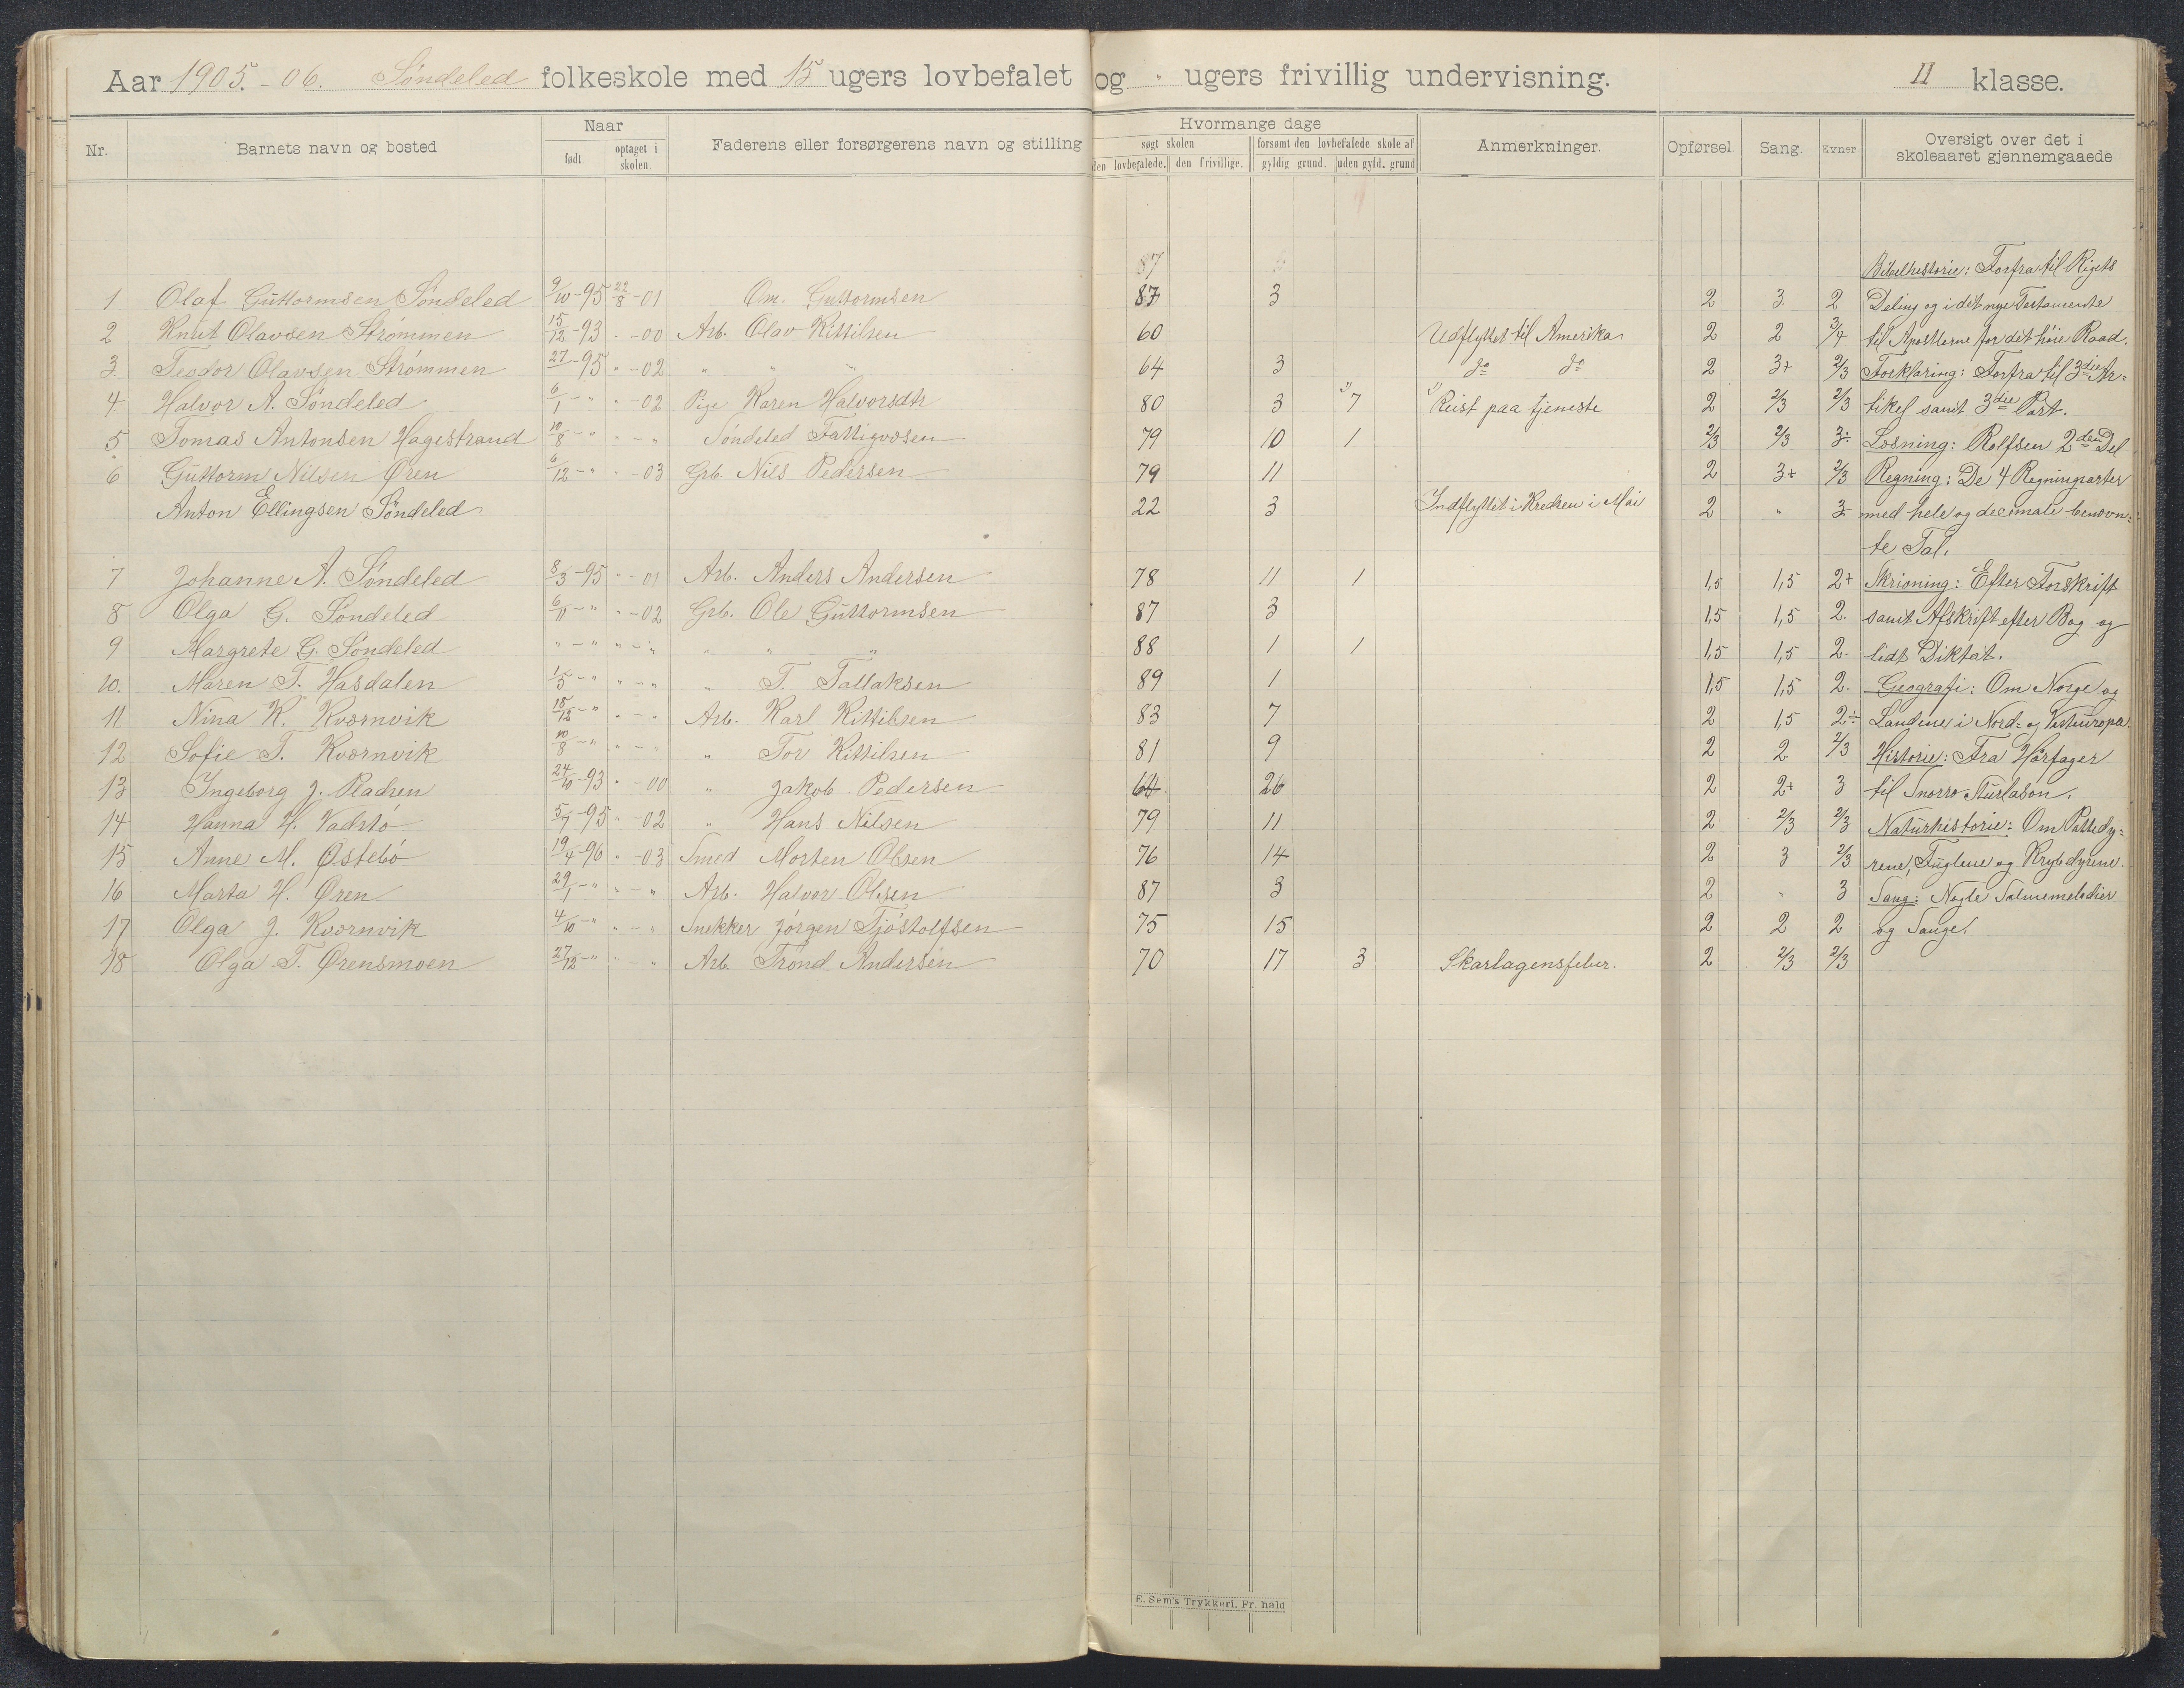 Aar 1905.-06. Söndeled folkeskole med 15 ugers lovbefalet og " ugers frivillig undervisning. II klasse.
Nr. Barnets navn og bosted Naar født optaget i skolen. Faderens eller forsørgerens navn og stilling Hvormange dage søgt skolen den lovbefalede. den frivillige. forsømt den lovbefalede skole af gyldig grund. uden gyld. grund Anmerkninger. Opførsel. Sang. Evner Oversigt over det i skoleaaret gjennemgaaede
87 Bibelhistorie: Forfra til Rigets
1 Olaf Guttormsen Söndeled 9/10-95 22/8-01 " Om. Guttormsen 87 3 2 3 2 Deling og i det nye Testamente
2 Knut Olavsen Strömmen 15/12-93 "-00 Arb. Olav Kittilsen 60 Udflyttet til Amerika 2 2 3/4 til Apostlerne for det høie Raad.
3. Teodor Olavsen Strömmen 27-95 "-02 " " " 64 3 do do 2 3+ 2/3 Forklaring: Forfra til 3die Ar-
4. Halvor A. Söndeled 6/1-" "-02 Pige Karen Halvorsdtr 80 3 1) 7 1) Reist paa tjeneste 2 2/3 2/3 tikel samt 3die Part.
5 Tomas Antonsen Hagestrand 10/8-" "-" Söndeled Fattigvæsen 79 10 1 2/3 2/3 3÷ Læsning: Rolfsen 2den Del
6 Guttorm Nilsen Øren 6/12-" "-03 Grb. Nils Pedersen 79 11 2 3+ 2/3 Regning: De 4 Regningsarter
Anton Ellingsen Söndeled 22 3 Indflyttet i Kredsen i Mai 2 " 3- med hele og decimale benævn-
te Tal.
7 Johanne A. Söndeled 8/3-95 "-01 Arb. Anders Andersen 78 11 1 1,5 1,5 2+ Skrivning: Efter Forskrift
8 Olga G. Söndeled 6/11-" "-02 Grb. Ole Guttormsen 87 3 1,5 1,5 2. samt Afskrift efter Bog og
9 Margrete G. Söndeled "-" "-" " " " 88 1 1 1,5 1,5 2. lidt Diktat.
10. Maren T. Hasdalen 1/5-" "-" " T. Tallaksen 89 1 1,5 1,5 2. Geografi: Om Norge og
11. Nina K. Kværnvik 18/12-" "-" Arb. Karl Kittilsen 83 7 2 1,5 2÷ Landene i Nord- og Vesteuropa.
12 Sofie T. Kværnvik 10/8-" "-" " Tor Kittilsen 81 9 2 2 2/3 Historie: Fra Hårfager
13 Ingeborg J. Pladsen 24/10-93 "-00 " Jakob Pedersen 64 26 2 2+ 3 til Snorro Sturlason.
14 Hanna H. Vadstö 5/7-95 "-02 " Hans Nilsen 79 11 2 2/3 2/3 Naturhistorie: Om Pattedy-
15 Anne M. Østebö 19/4-96 "-03 Smed Morten Olsen 76 14 2 3 2/3 rene, Fuglene og Krybdyrene.
16 Marta H. Øren 29/1-" "-" Arb. Halvor Olsen 87 3 2 " 3 Sang: Nogle Salmemelodier
17 Olga J. Kværnvik 4/10-" "-" Snekker Jörgen Tjöstolfsen 75 15 2 2 2 og Sange.
18 Olga T. Ørensmoen 27/12-" "-" Arb. Trond Andersen 70 17 3 Skarlagensfeber. 2 2/3 2/3
E. Sem's Trykkeri, Fr. hald